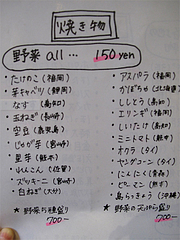 焼き物
野菜 all... 150yen
たけのこ(福岡)
芽キャベツ(静岡)
なす(高知)
玉ねぎ(長崎)
空豆(鹿児島)
じゃが芋(宮崎)
里芋(熊本)
れんこん(佐賀)
ズッキーニ(宮崎)
白ねぎ(大分)
★野菜お種盛り
700-
アスパラ(福岡)
かぼちゃ(北海道)
ししとう(高知)
エリンギ(福岡)
しいたけ(高知)
ミニトマト(熊本)
オクラ(タイ)
ヤングコーン(タイ)
にんにく(青森)
ピーマン(熊本)
島らっきょう(沖縄)
★野菜の天ぷら盛り
700-